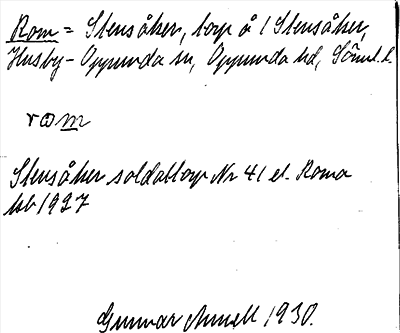 Rom = Stensåker, torp å 1 Stensåker,
Husby-Oppunda sn, Oppunda hd, Söml. l.
rωm
Stensåker soldattorp Nr 41 el. Roma
hb 1927
Gunnar Annell 1930.